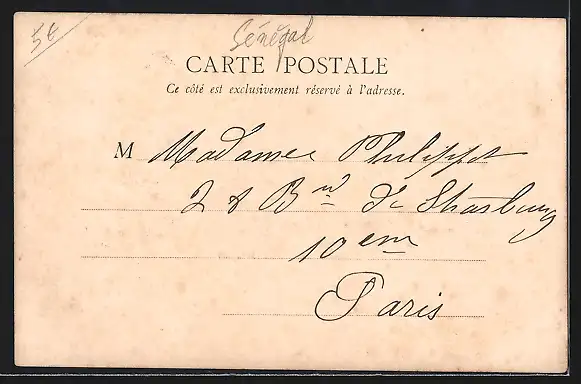 5€
Sénégal
CARTE POSTALE
Ce côté est exclusivement réservé à l'adresse.
M Madame Philippot
28 Bd de Strasbourg
10em
Paris